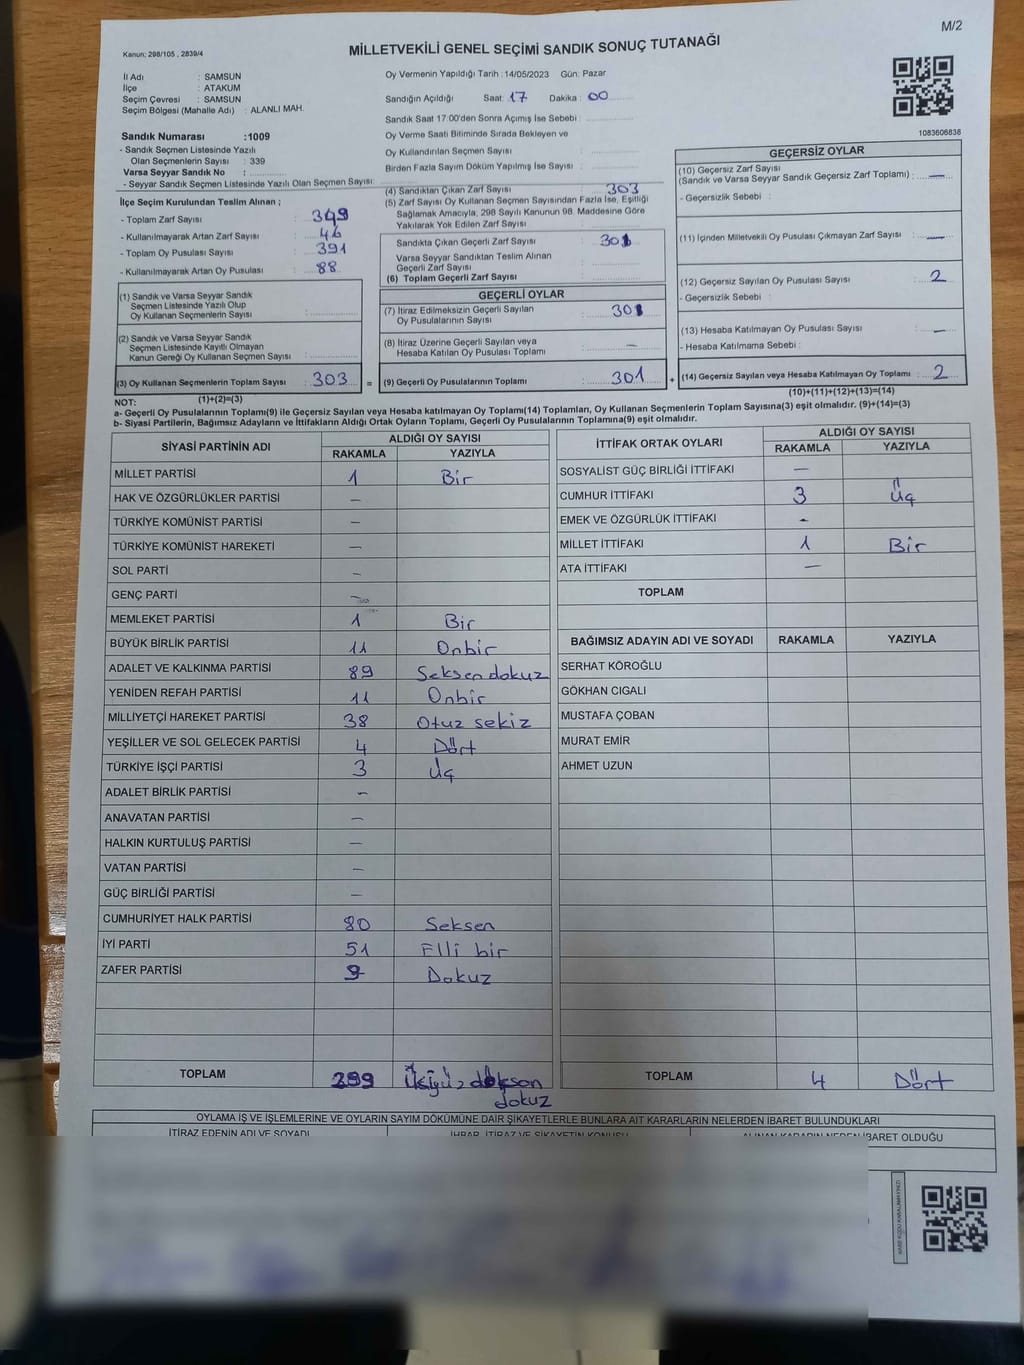 M/2
Kanun: 298/105 , 2839/4
MİLLETVEKİLİ GENEL SEÇİMİ SANDIK SONUÇ TUTANAĞI
İl Adı : SAMSUN
İlçe : ATAKUM
Seçim Çevresi : SAMSUN
Seçim Bölgesi (Mahalle Adı) : ALANLI MAH.
Sandık Numarası :1009
- Sandık Seçmen Listesinde Yazılı
Olan Seçmenlerin Sayısı : 339
Varsa Seyyar Sandık No :
- Seyyar Sandık Seçmen Listesinde Yazılı Olan Seçmen Sayısı:
Oy Vermenin Yapıldığı Tarih :14/05/2023 Gün: Pazar
Sandığın Açıldığı Saat: 17 Dakika : 00
Sandık Saat 17:00'den Sonra Açımış İse Sebebi :
Oy Verme Saati Bitiminde Sırada Bekleyen ve
Oy Kullandırılan Seçmen Sayısı :
Birden Fazla Sayım Döküm Yapılmış İse Sayısı :
1083606838
İlçe Seçim Kurulundan Teslim Alınan ;
- Toplam Zarf Sayısı : 349
- Kullanılmayarak Artan Zarf Sayısı : 46
- Toplam Oy Pusulası Sayısı : 391
- Kullanılmayarak Artan Oy Pusulası : 88
(1) Sandık ve Varsa Seyyar Sandık
Seçmen Listesinde Yazılı Olup
Oy Kullanan Seçmenlerin Sayısı :
(2) Sandık ve Varsa Seyyar Sandık
Seçmen Listesinde Kayıtlı Olmayan
Kanun Gereği Oy Kullanan Seçmen Sayısı :
(3) Oy Kullanan Seçmenlerin Toplam Sayısı : 303 =
(1)+(2)=(3)
(4) Sandıktan Çıkan Zarf Sayısı : 303
(5) Zarf Sayısı Oy Kullanan Seçmen Sayısından Fazla İse, Eşitliği
Sağlamak Amacıyla, 298 Sayılı Kanunun 98. Maddesine Göre
Yakılarak Yok Edilen Zarf Sayısı :
Sandıkta Çıkan Geçerli Zarf Sayısı : 301
Varsa Seyyar Sandıktan Teslim Alınan
Geçerli Zarf Sayısı :
(6) Toplam Geçerli Zarf Sayısı :
GEÇERLİ OYLAR
(7) İtiraz Edilmeksizin Geçerli Sayılan
Oy Pusulalarının Sayısı : 301
(8) İtiraz Üzerine Geçerli Sayılan veya
Hesaba Katılan Oy Pusulası Toplamı : —
(9) Geçerli Oy Pusulalarının Toplamı : 301 +
GEÇERSİZ OYLAR
(10) Geçersiz Zarf Sayısı
(Sandık ve Varsa Seyyar Sandık Geçersiz Zarf Toplamı) : —
- Geçersizlik Sebebi :
(11) İçinden Milletvekili Oy Pusulası Çıkmayan Zarf Sayısı : —
(12) Geçersiz Sayılan Oy Pusulası Sayısı : 2
- Geçersizlik Sebebi :
(13) Hesaba Katılmayan Oy Pusulası Sayısı : —
- Hesaba Katılmama Sebebi :
(14) Geçersiz Sayılan veya Hesaba Katılmayan Oy Toplamı : 2
(10)+(11)+(12)+(13)=(14)
NOT:
a- Geçerli Oy Pusulalarının Toplamı(9) ile Geçersiz Sayılan veya Hesaba katılmayan Oy Toplamı(14) Toplamları, Oy Kullanan Seçmenlerin Toplam Sayısına(3) eşit olmalıdır. (9)+(14)=(3)
b- Siyasi Partilerin, Bağımsız Adayların ve İttifakların Aldığı Ortak Oyların Toplamı, Geçerli Oy Pusulalarının Toplamına(9) eşit olmalıdır.
SİYASİ PARTİNİN ADI ALDIĞI OY SAYISI
RAKAMLA YAZIYLA
MİLLET PARTİSİ 1 Bir
HAK VE ÖZGÜRLÜKLER PARTİSİ —
TÜRKİYE KOMÜNİST PARTİSİ —
TÜRKİYE KOMÜNİST HAREKETİ —
SOL PARTİ —
GENÇ PARTİ —
MEMLEKET PARTİSİ 1 Bir
BÜYÜK BİRLİK PARTİSİ 11 Onbir
ADALET VE KALKINMA PARTİSİ 89 Seksen dokuz
YENİDEN REFAH PARTİSİ 11 Onbir
MİLLİYETÇİ HAREKET PARTİSİ 38 Otuz sekiz
YEŞİLLER VE SOL GELECEK PARTİSİ 4 Dört
TÜRKİYE İŞÇİ PARTİSİ 3 Üç
ADALET BİRLİK PARTİSİ —
ANAVATAN PARTİSİ —
HALKIN KURTULUŞ PARTİSİ —
VATAN PARTİSİ —
GÜÇ BİRLİĞİ PARTİSİ —
CUMHURİYET HALK PARTİSİ 80 Seksen
İYİ PARTİ 51 Elli bir
ZAFER PARTİSİ 9 Dokuz
TOPLAM 299 İkiyüz doksan
dokuz
İTTİFAK ORTAK OYLARI ALDIĞI OY SAYISI
RAKAMLA YAZIYLA
SOSYALİST GÜÇ BİRLİĞİ İTTİFAKI —
CUMHUR İTTİFAKI 3 Üç
EMEK VE ÖZGÜRLÜK İTTİFAKI -
MİLLET İTTİFAKI 1 Bir
ATA İTTİFAKI —
TOPLAM
BAĞIMSIZ ADAYIN ADI VE SOYADI RAKAMLA YAZIYLA
SERHAT KÖROĞLU
GÖKHAN CIGALI
MUSTAFA ÇOBAN
MURAT EMİR
AHMET UZUN
TOPLAM 4 Dört
OYLAMA İŞ VE İŞLEMLERİNE VE OYLARIN SAYIM DÖKÜMÜNE DAİR ŞİKAYETLERLE BUNLARA AİT KARARLARIN NELERDEN İBARET BULUNDUKLARI
İTİRAZ EDENİN ADI VE SOYADI İHBAR, İTİRAZ VE ŞİKAYETİN KONUSU ALINAN KARARIN NEDEN İBARET OLDUĞU